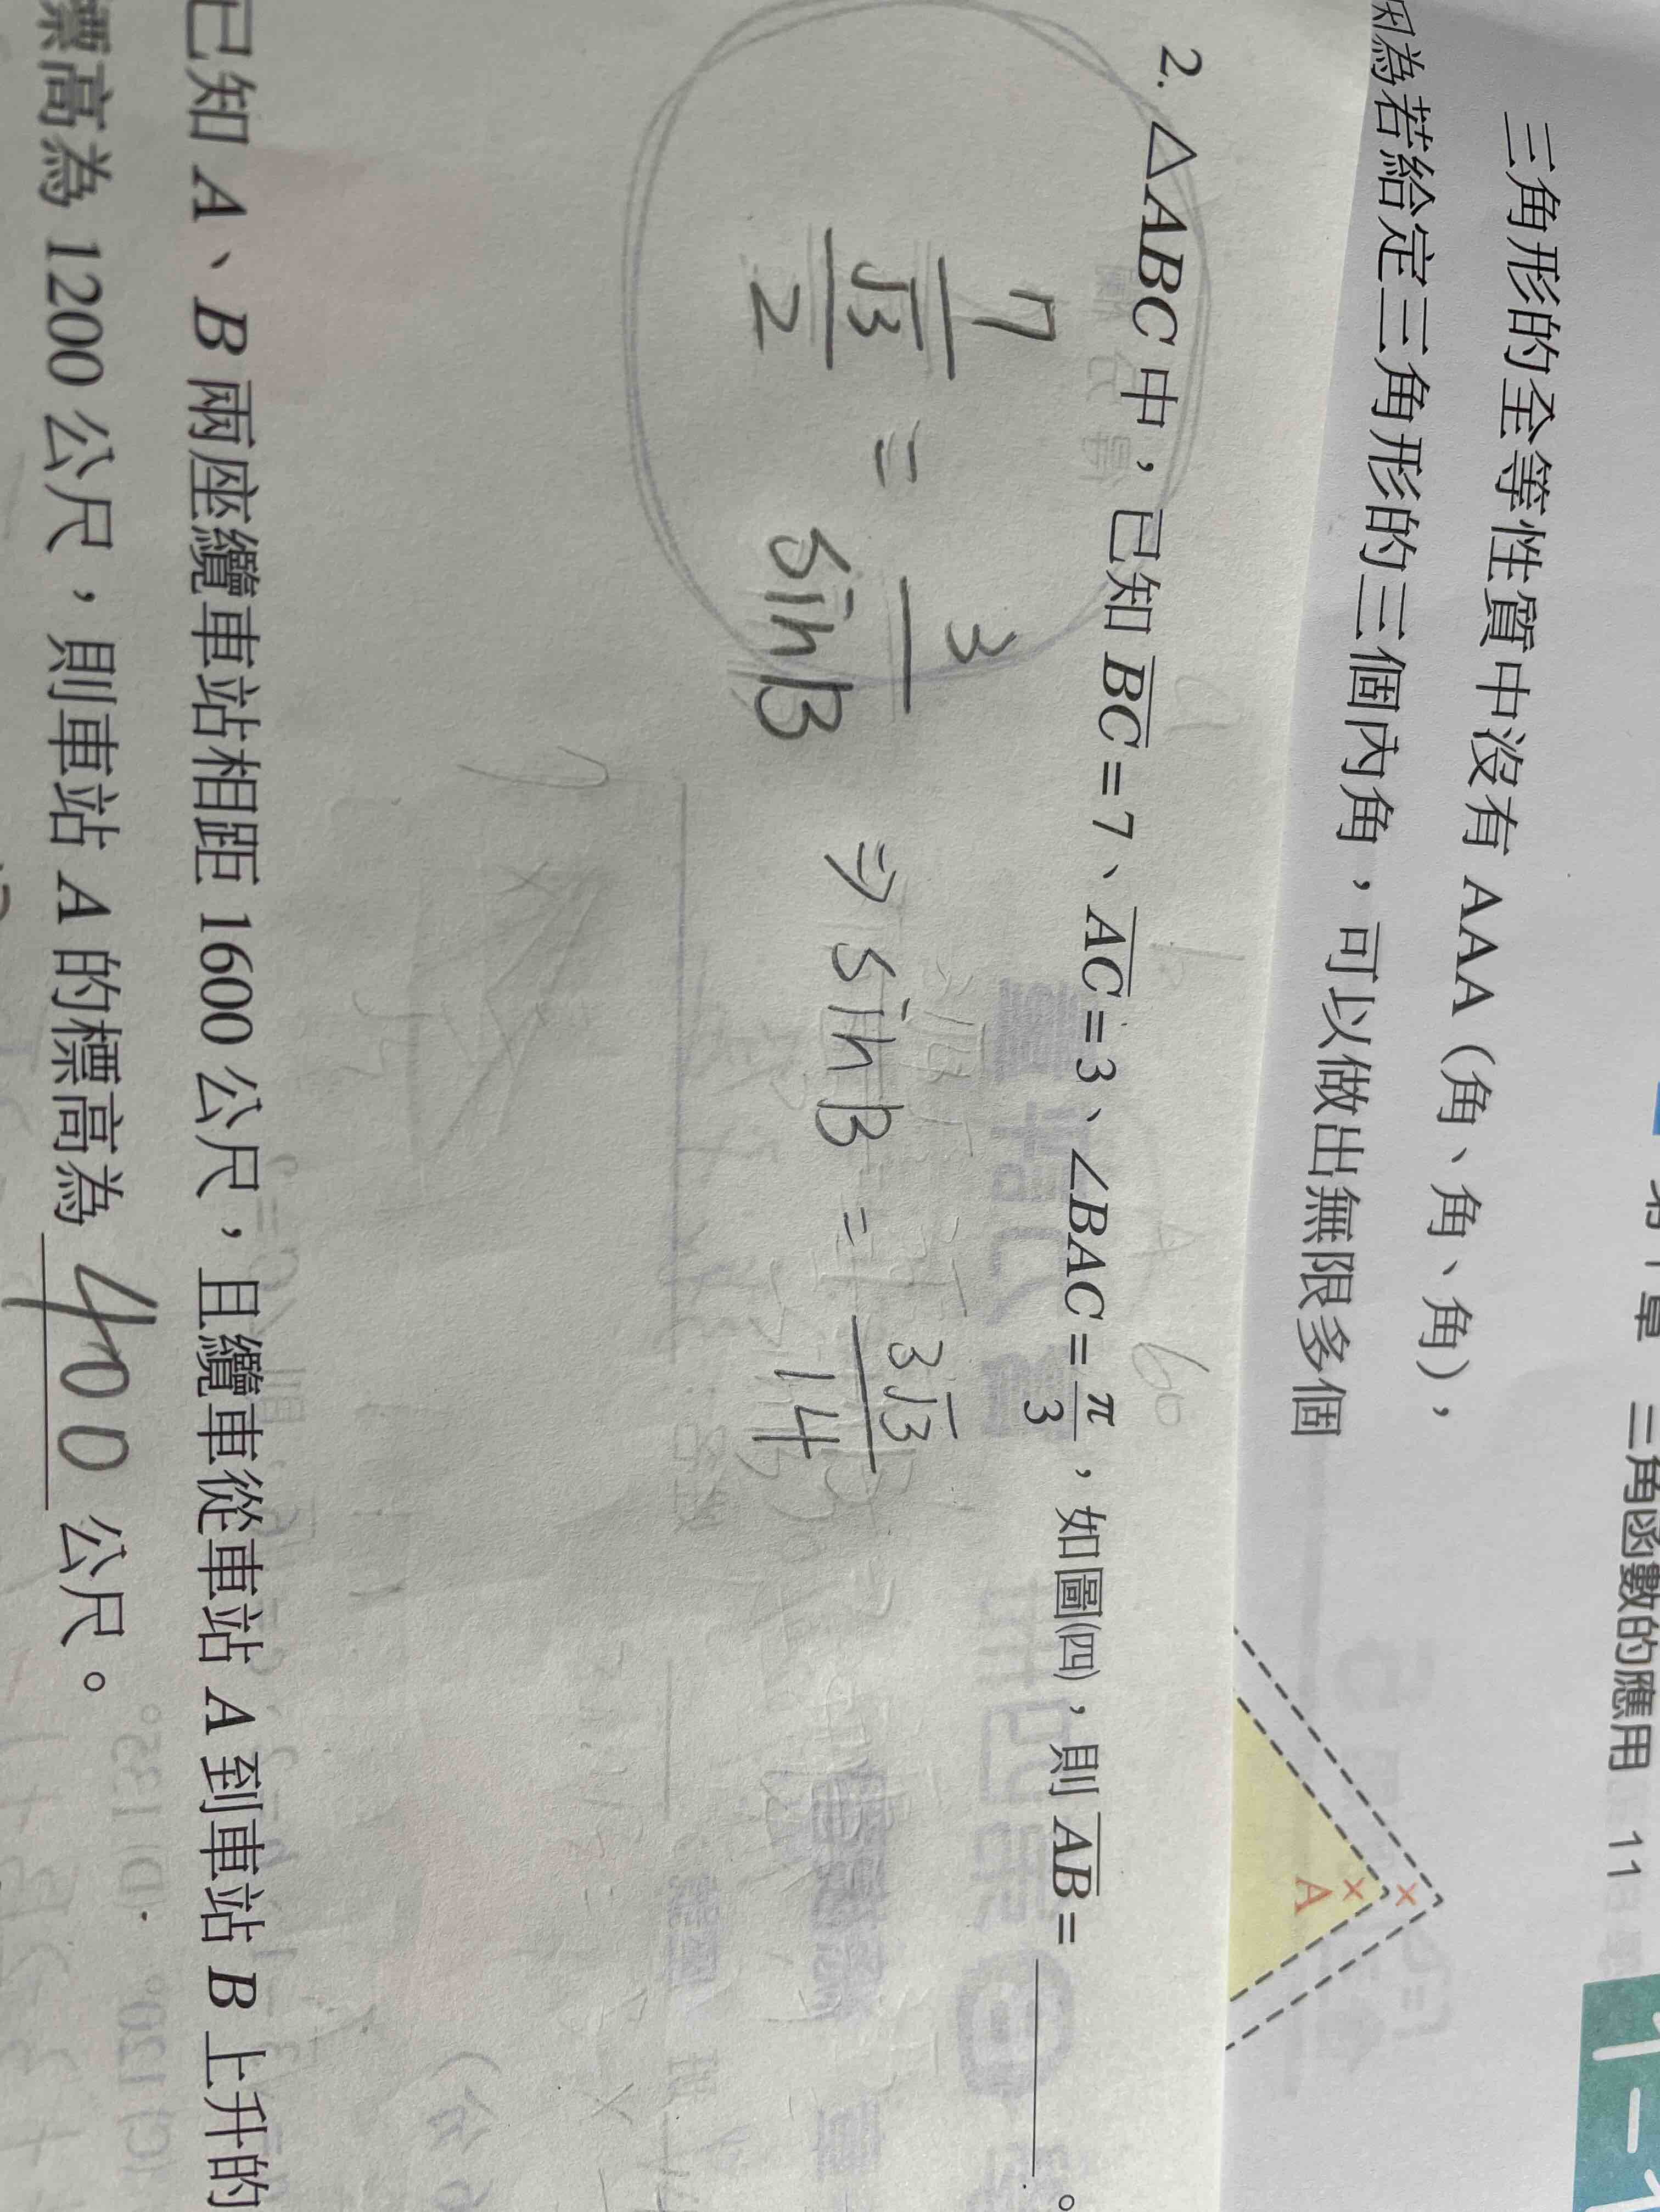 三角函數的應用 11
三角形的全等性質中沒有 AAA（角、角、角），
因為若給定三角形的三個內角，可以做出無限多個
A
2. △ABC 中，已知 BC=7、AC=3、∠BAC=π/3，如圖(四)，則 AB= ______。
7/(√3/2) = 3/sinB ⇒ sinB = 3√3/14
已知 A、B 兩座纜車站相距 1600 公尺，且纜車從車站 A 到車站 B 上升的
標高為 1200 公尺，則車站 A 的標高為 400 公尺。